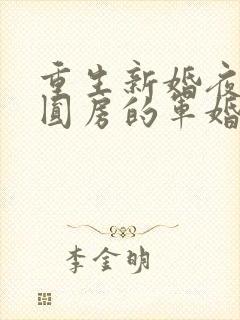 重生新婚夜
圆房的军婚
李金明